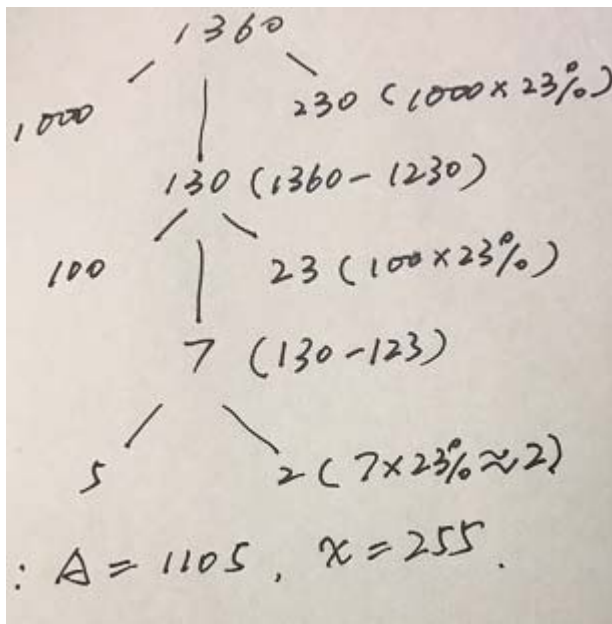 1360
1000
230 (1000×23%)
130 (1360-1230)
100
23 (100×23%)
7 (130-123)
5
2 (7×23%≈2)
: A = 1105, x = 255.